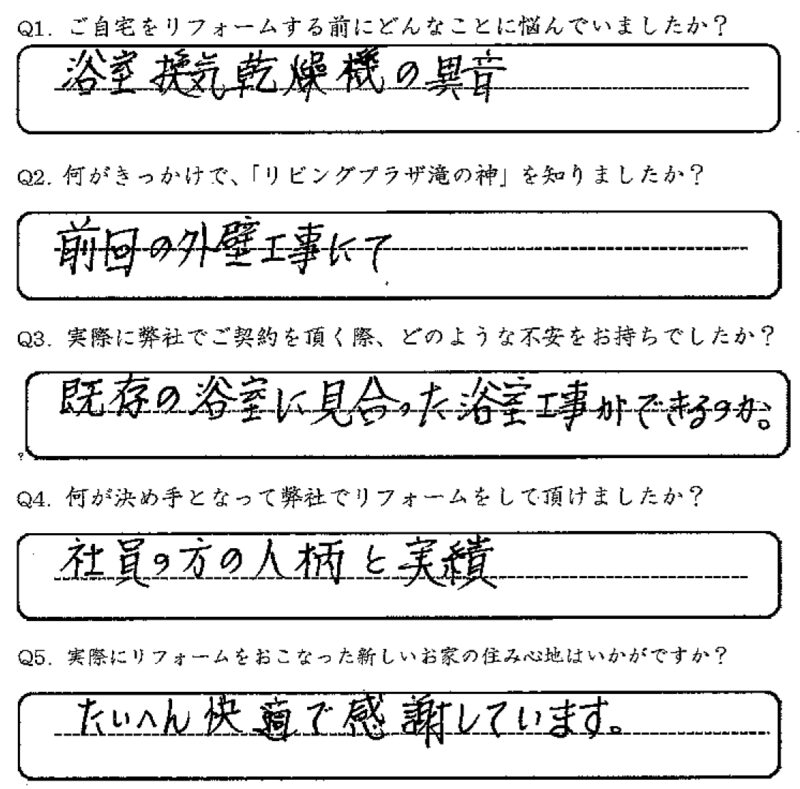 Q1. ご自宅をリフォームする前にどんなことに悩んでいましたか？
浴室換気乾燥機の異音
Q2. 何がきっかけで、「リビングプラザ滝の神」を知りましたか？
前回の外壁工事にて
Q3. 実際に弊社でご契約を頂く際、どのような不安をお持ちでしたか？
既存の浴室に見合った浴室工事ができるのか。
Q4. 何が決め手となって弊社でリフォームをして頂けましたか？
社員の方の人柄と実績
Q5. 実際にリフォームをおこなった新しいお家の住み心地はいかがですか？
たいへん快適で感謝しています。